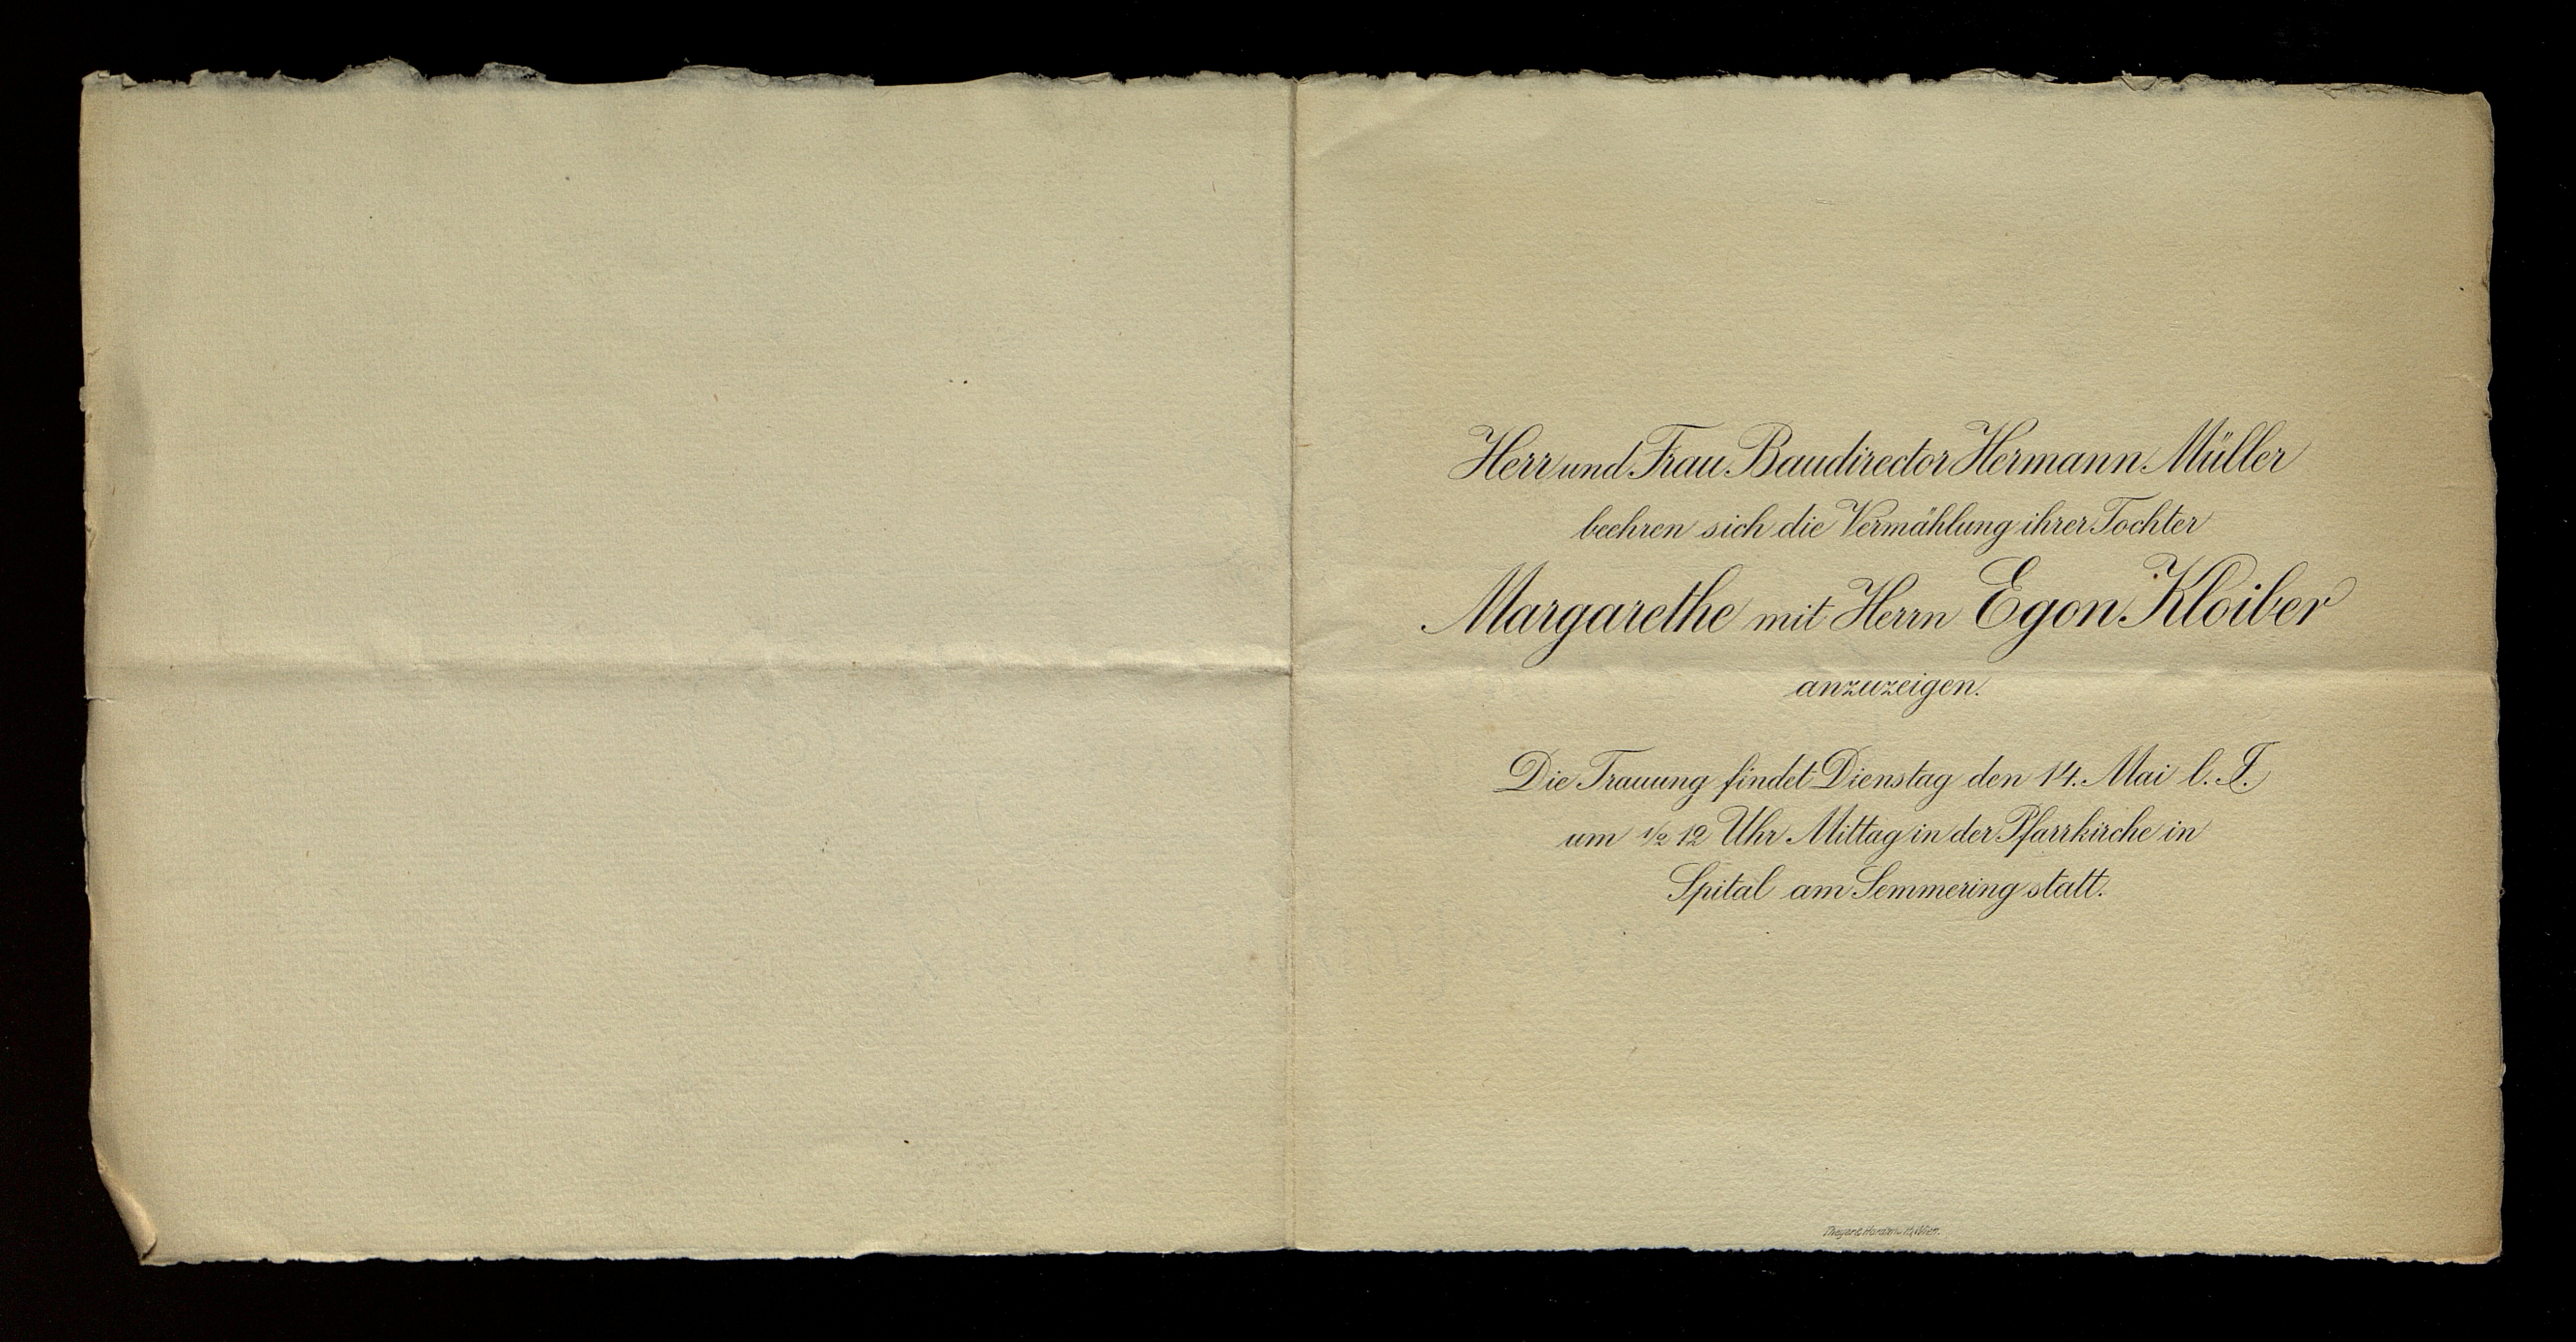 Herr und Frau Baudirector Hermann Müller
beehren sich die Vermählung ihrer Tochter
Margarethe mit Herrn Egon Kloiber
anzuzeigen.
Die Trauung findet Dienstag den 14. Mai l. J.
um 1/2 12 Uhr Mittag in der Pfarrkirche in
Spital am Semmering statt.
Wien.